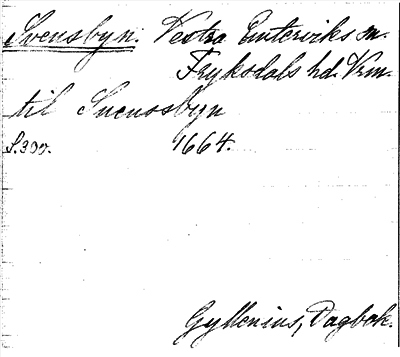 Svensbyn. Vestra Emterviks sn.
Fryksdals hd. Vrm.
till Suenssbyn
S. 300. 1664.
Gyllenius, Dagbok.